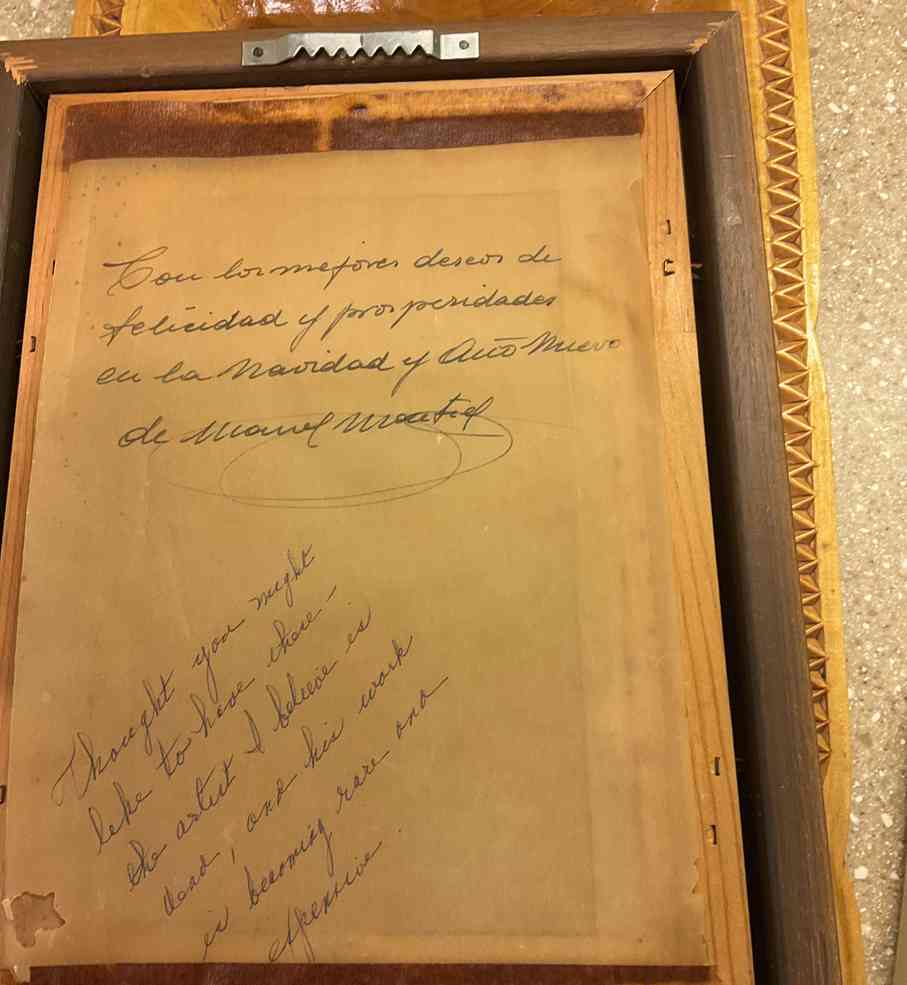 Con los mejores deseos de
felicidad y prosperidades
en la Navidad y Año Nuevo
de Manuel Montiel
Thought you might
like to have these -
the artist I believe is
dead, and his work
is becoming rare and
expensive.